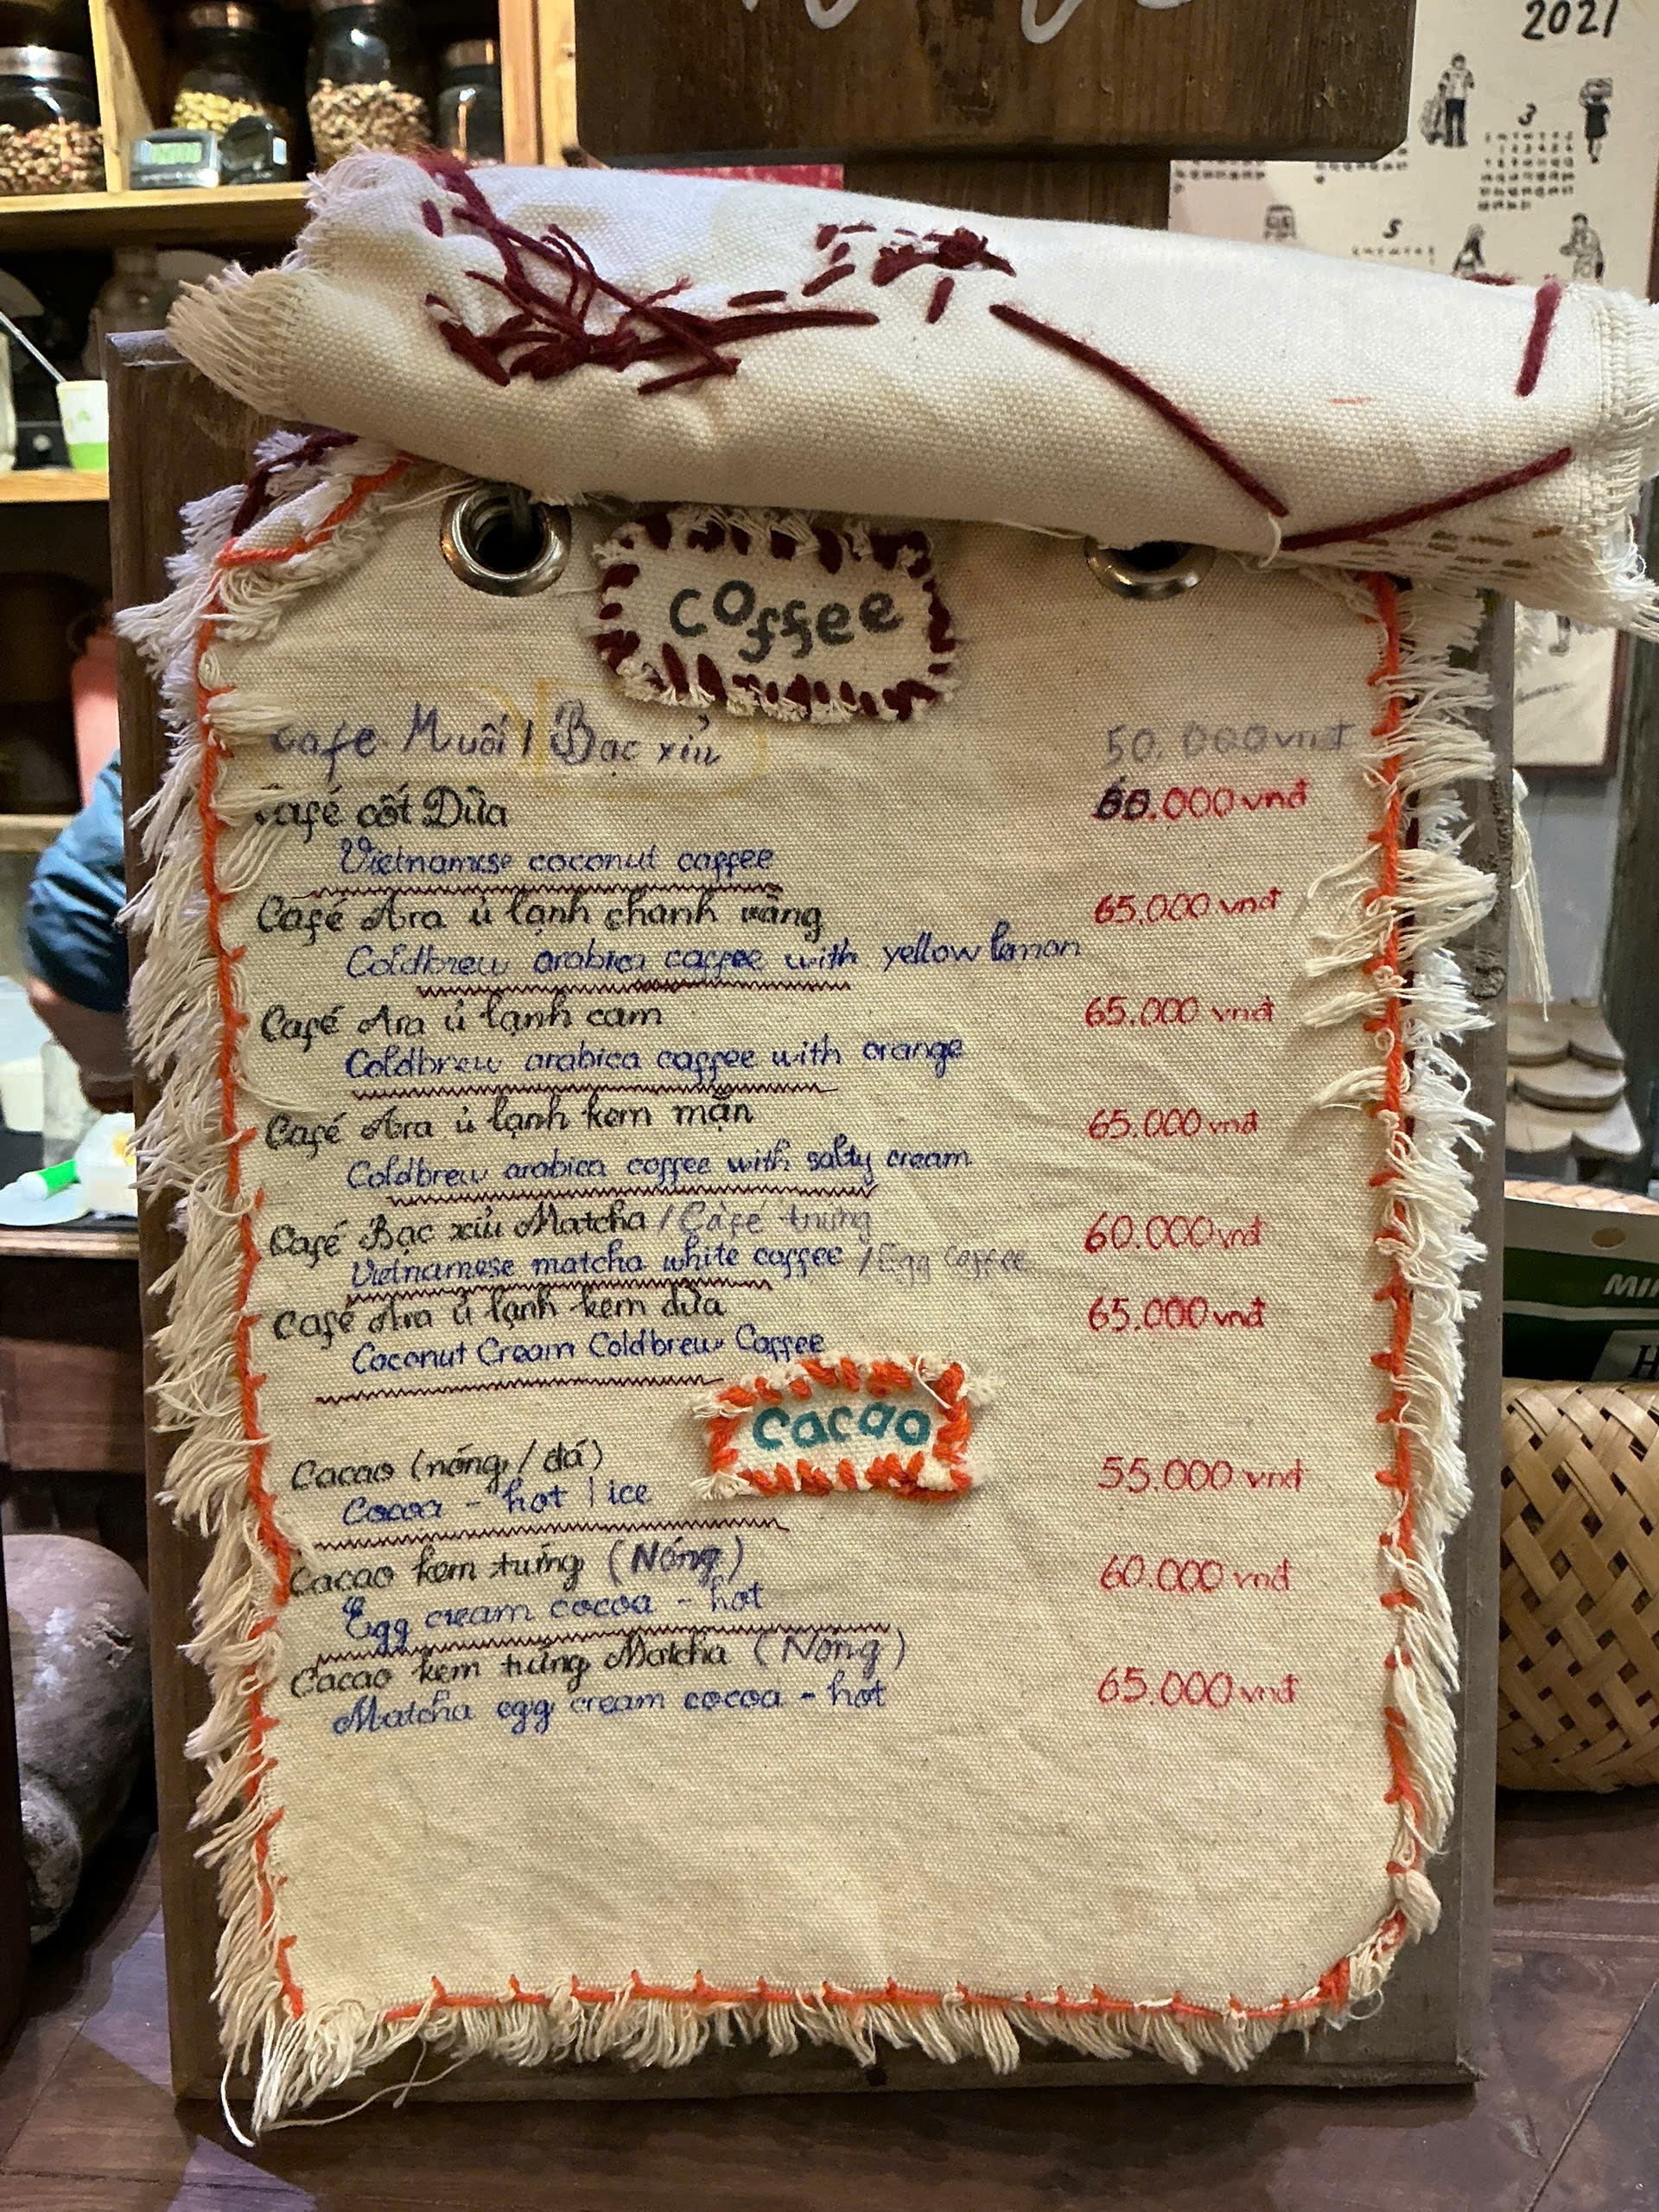 2021
3
5
coffee
Cafe Muối / Bạc xỉu 50.000 vnđ
Café cốt Dừa .000 vnđ
Vietnamese coconut caffee
Café Ara ủ lạnh chanh vàng 65.000 vnđ
Coldbrew arabica caffee with yellow lemon
Café Ara ủ lạnh cam 65.000 vnđ
Coldbrew arabica caffee with orange
Café Ara ủ lạnh kem mặn 65.000 vnđ
Coldbrew arabica coffee with salty cream
Café Bạc xỉu Matcha / Café trứng 60.000 vnđ
Vietnamese matcha white coffee / Egg Coffee
Café Ara ủ lạnh kem dừa 65.000 vnđ
Coconut Cream Coldbrew Coffee
cacao
Cacao (nóng / đá) 55.000 vnđ
Cocoa - hot | ice
Cacao kem trứng (Nóng) 60.000 vnđ
Egg cream cocoa - hot
Cacao kem trứng Matcha (Nóng) 65.000 vnđ
Matcha egg cream cocoa - hot